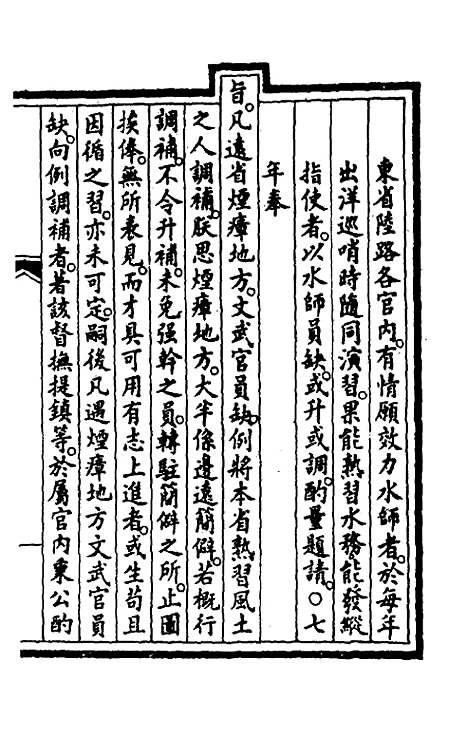 東省陸路各官内。有情願效力水師者。於每年
出洋巡哨時隨同演習。果能熟習水務。能發縱
指使者。以水師員缺。或升或調。酌量題請。○七
年奉
旨。凡遠省煙瘴地方。文武官員缺。例將本省熟習風土
之人調補。朕思煙瘴地方。大半係邊遠簡僻。若概行
調補。不令升補。未免强幹之員。轉駐簡僻之所。止圖
挨俸。無所表見。而才具可用有志上進者。或生苟且
因循之習。亦未可定。嗣後凡遇煙瘴地方文武官員
缺。向例調補者。著該督撫提鎮等。於屬官内秉公酌